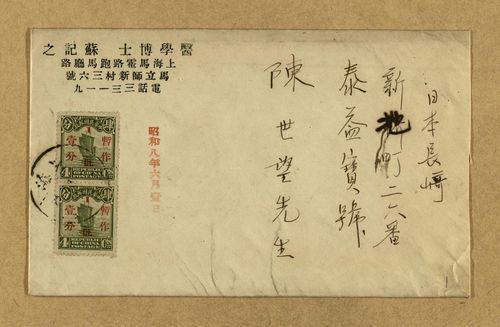 醫學博士 蘇記之
上海馬霍路跑馬廳路
馬立師新村三六號
電話三三一一九
日本長崎
新地町二六番
泰益寶號
陳世望先生
昭和八年六月壹日
暫作
壹分
1
REPUBLIC
OF CHINA
POSTAGE
4
暫作
壹分
1
REPUBLIC
OF CHINA
POSTAGE
4